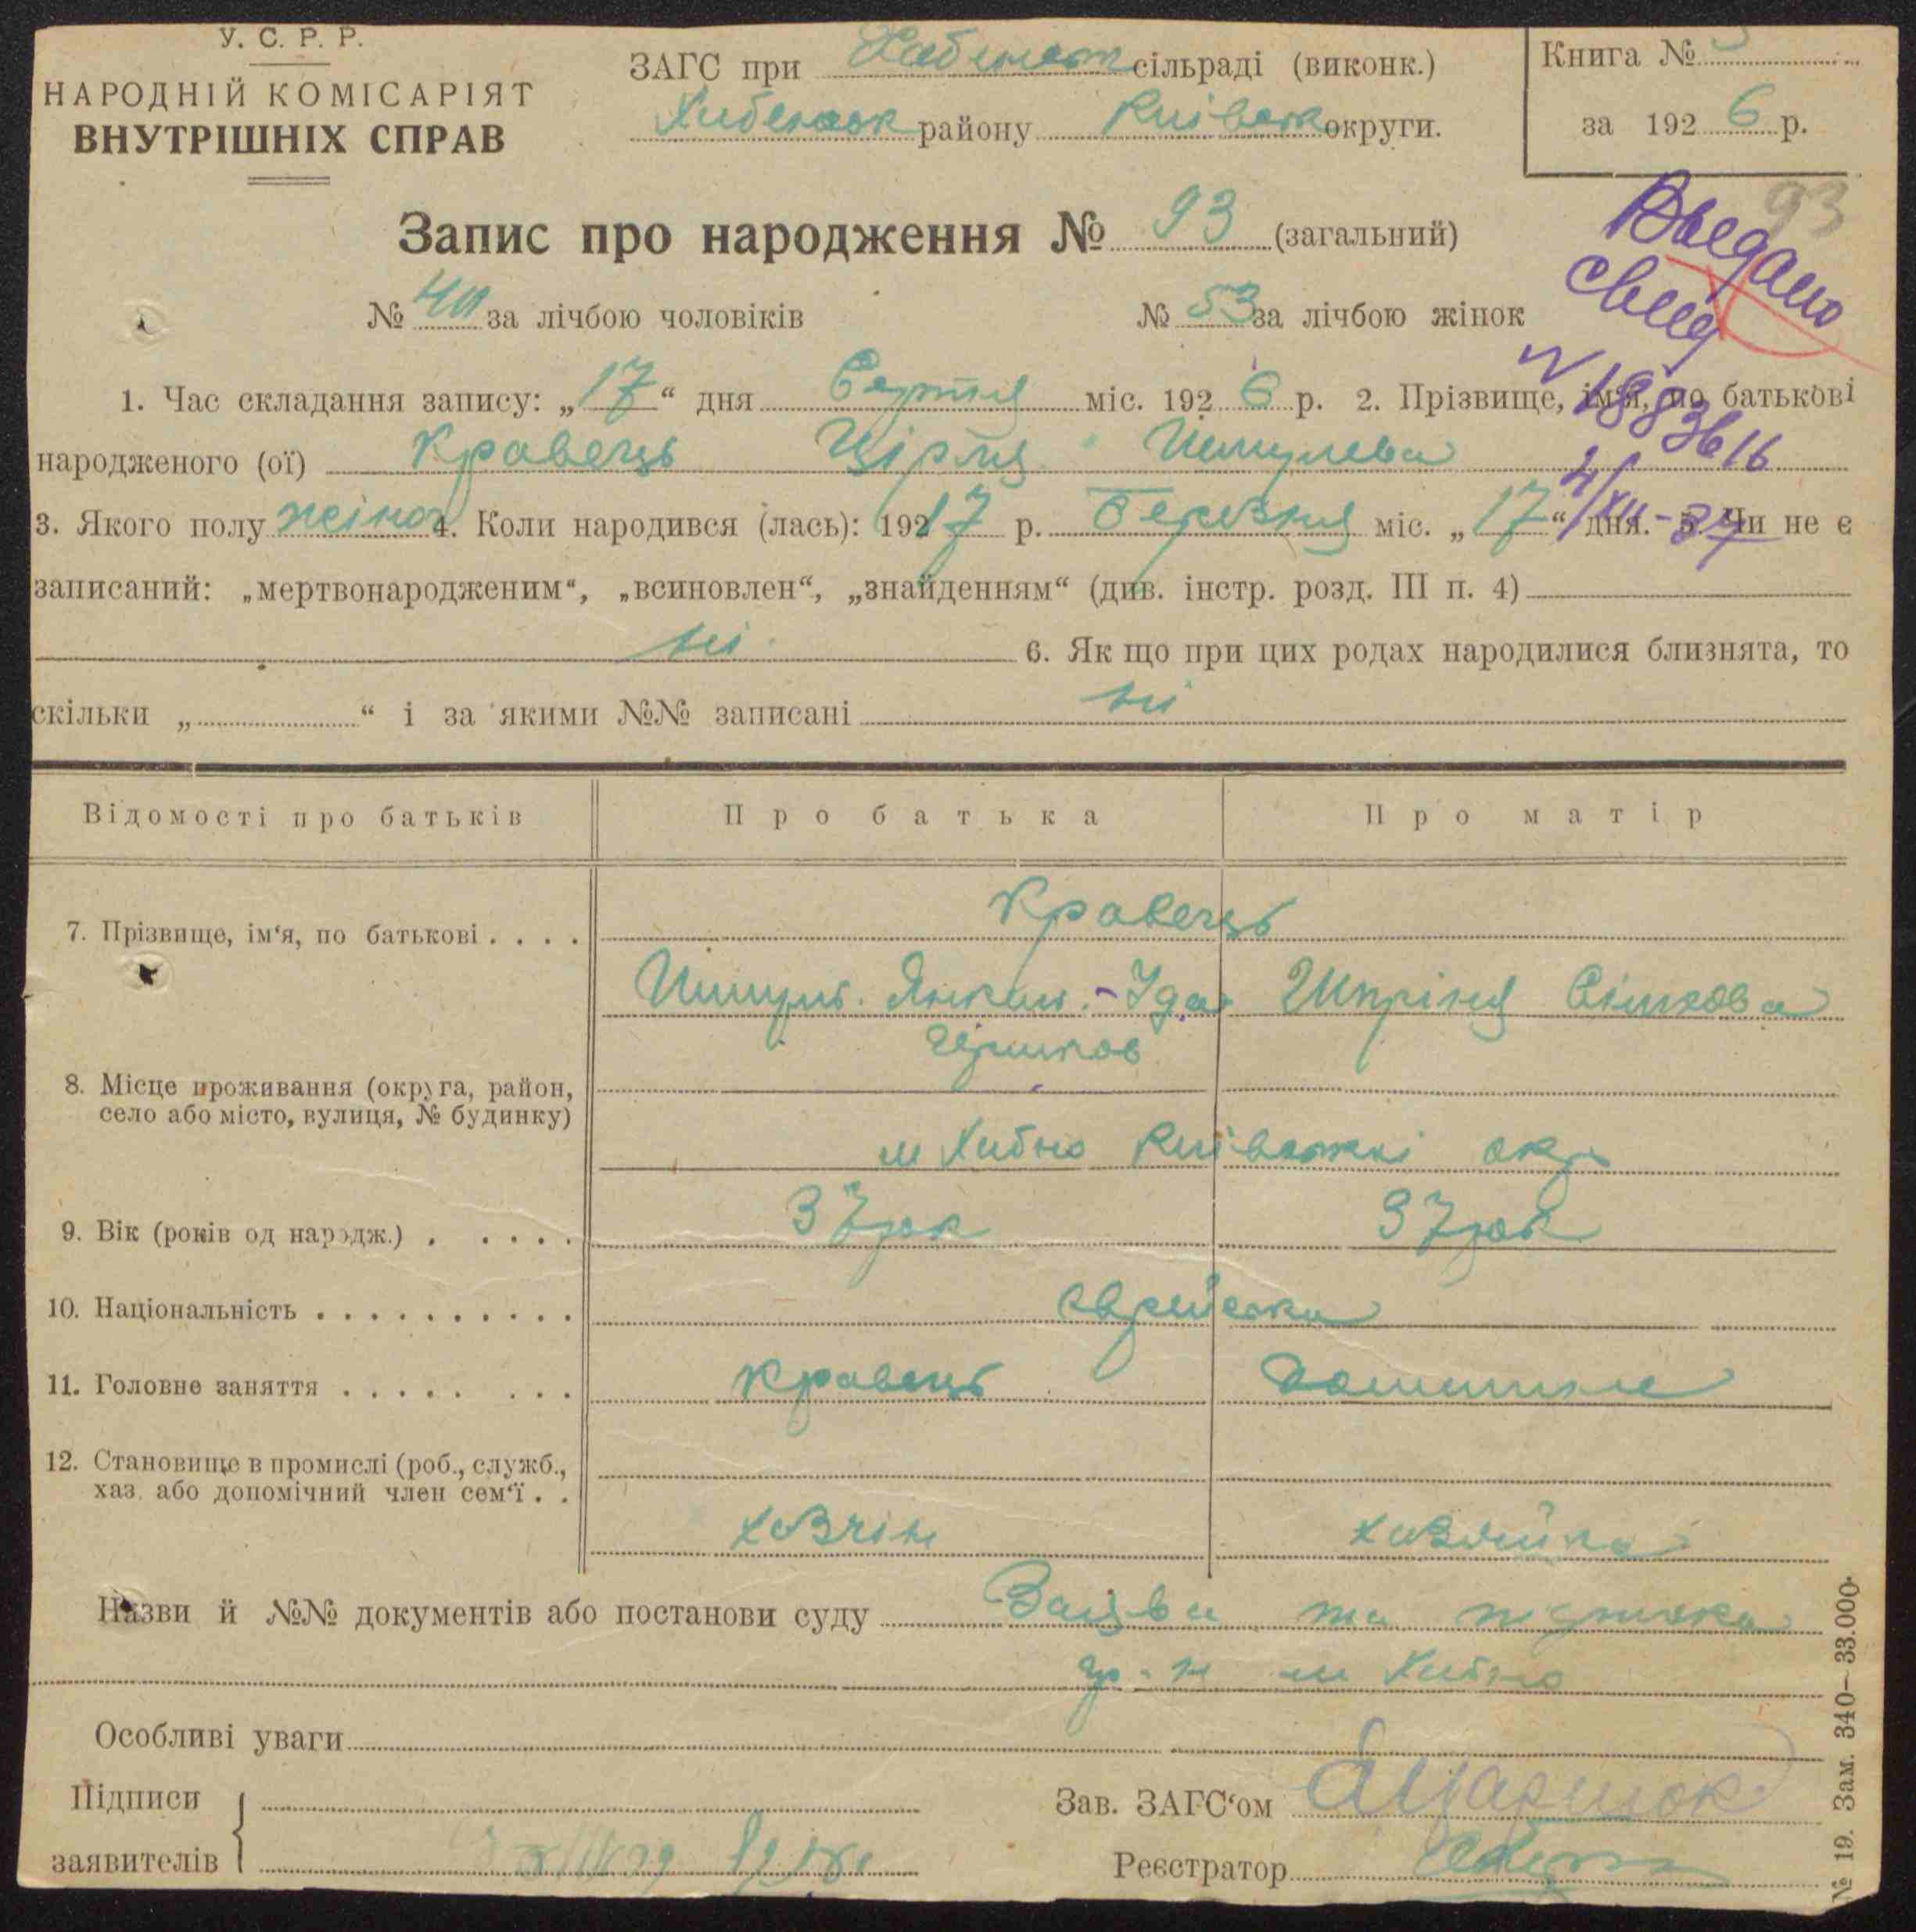 У. С. Р. Р.
НАРОДНІЙ КОМІСАРІЯТ
ВНУТРІШНІХ СПРАВ
ЗАГС при Хабенськ сільраді (виконк.)
Хабенськ району Київськ округи.
Книга №
за 1926 р.
93
Запис про народження № 93 (загальний)
Выдано
свид
№ 40 за лічбою чоловіків № 53 за лічбою жінок
N 1883616
1. Час складання запису: „17“ дня Серпня міс. 1926 р. 2. Прізвище, імя, по батькові
народженого (ої) Кравець Цірля
4/XII-37
3. Якого полу жіноч 4. Коли народився (лась): 1917 р. Березня міс. „17“ дня. 5. Чи не є
записаний: „мертвонародженим“, „всиновлен“, „знайденням“ (див. інстр. розд. III п. 4)
ні 6. Як що при цих родах народилися близнята, то
скільки „ “ і за якими №№ записані ні
Відомості про батьків Про батька Про матір
7. Прізвище, ім‘я, по батькові . . . . Кравець
Шпрінця
8. Місце проживання (округа, район,
село або місто, вулиця, № будинку)
м Хабно Київської окр
9. Вік (років од народж.) . . . . . 37 рок 37 рок
10. Національність . . . . . . . . . . єврейська
11. Головне заняття . . . . . . . . Кравець
12. Становище в промислі (роб., служб.,
хаз. або допомічний член сем‘ї . .
хазяїн хазяйка
Назви й №№ документів або постанови суду Заява та
гр-н м Хабно
Особливі уваги
Підписи
заявителів
Зав. ЗАГС‘ом
Реєстратор
№ 19. Зам. 340—33.000.